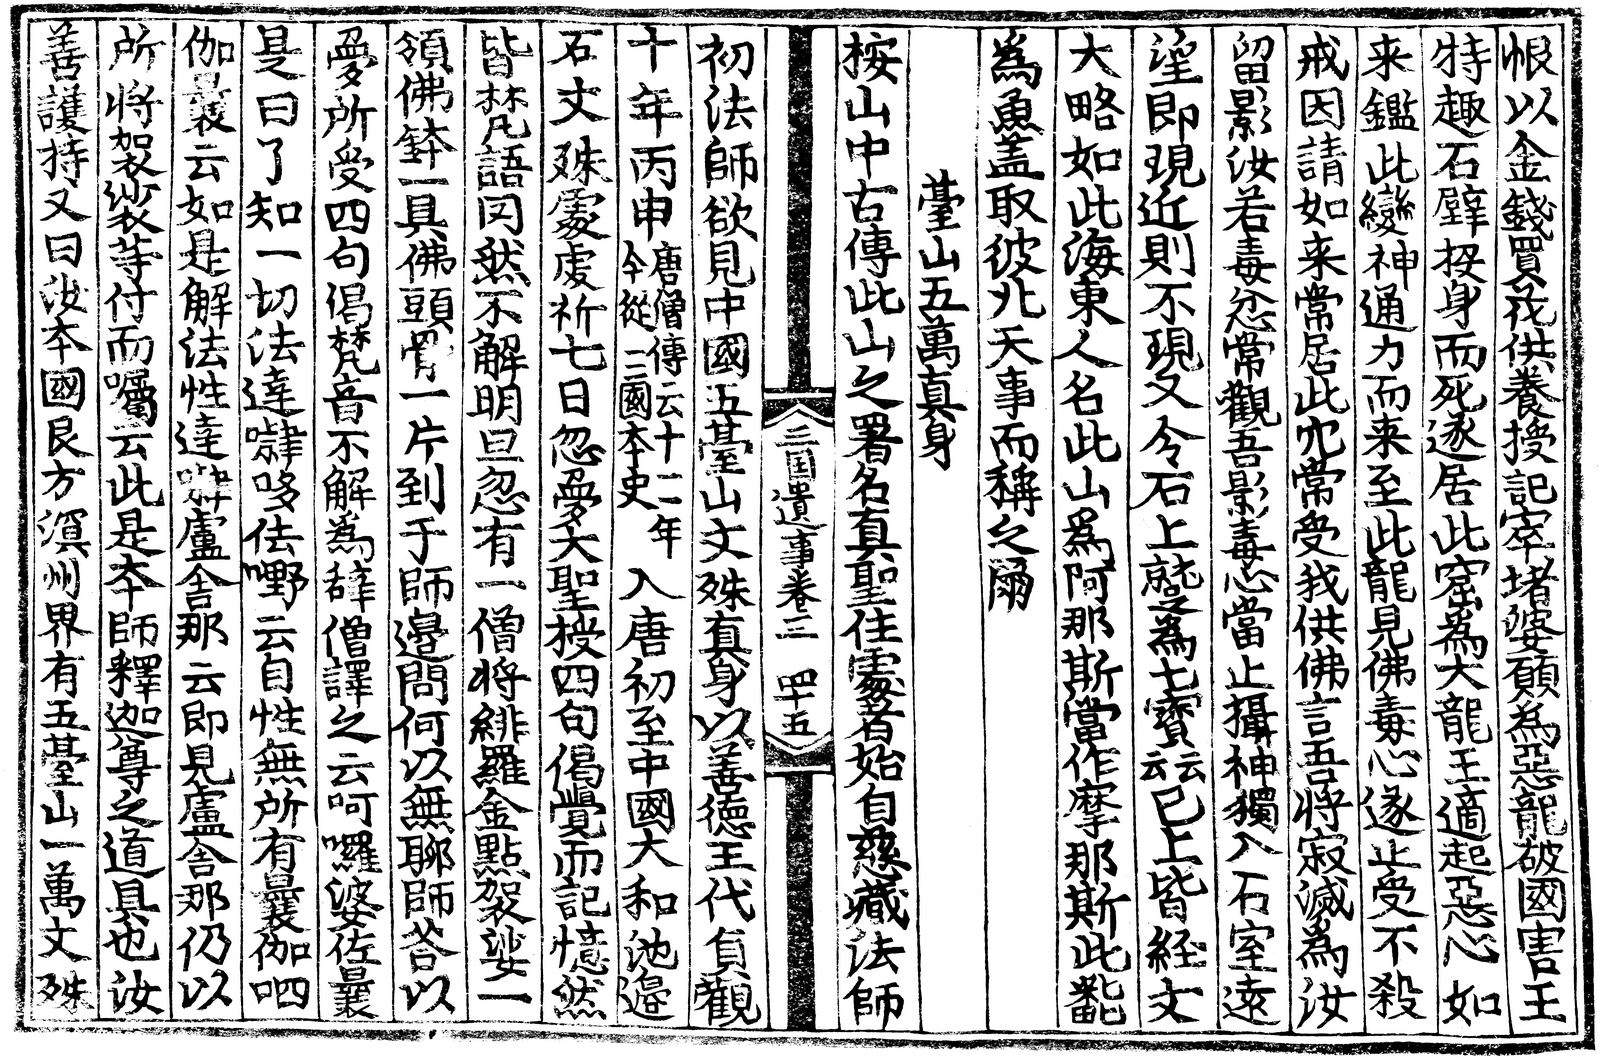 恨以金錢買花供養授記窣堵婆願為惡龍破國害王
特趣石壁投身而死遂居此窟為大龍王適起惡心如
来鑑此變神通力而来至此龍見佛毒心遂止受不殺
戒因請如来常居此穴常受我供佛言吾將寂滅為汝
留影汝若毒忿常觀吾影毒心當止攝神獨入石室遠
望即現近則不現又令石上蹵為七寶云云已上皆經文
大略如此海東人名此山為阿那斯當作摩那斯此飜
為魚盖取彼北天事而稱之爾
臺山五萬真身
按山中古傳此山之署名真聖住處者始自慈藏法師
三囯遺事卷三 四十五
初法師欲見中國五臺山文殊真身以善德王代貞觀
十年丙申唐僧傳云十二年今從三國本史入唐初至中國大和池邉
石文殊處虔祈七日忽夢大聖授四句偈覺而記憶然
皆梵語罔然不解明旦忽有一僧將緋羅金點袈裟一
領佛鉢一具佛頭骨一片到于師邉問何以無聊師荅以
夢所受四句偈梵音不解為辭僧譯之云呵囉婆佐曩
是曰了知一切法達㘑哆佉嘢云自性無所有曩伽呬
伽曩云如是解法性達㘑盧舎那云即見盧舎那仍以
所將袈裟等付而囑云此是夲師釋迦尊之道具也汝
善護持又曰汝夲國艮方溟州界有五䑓山一萬文殊